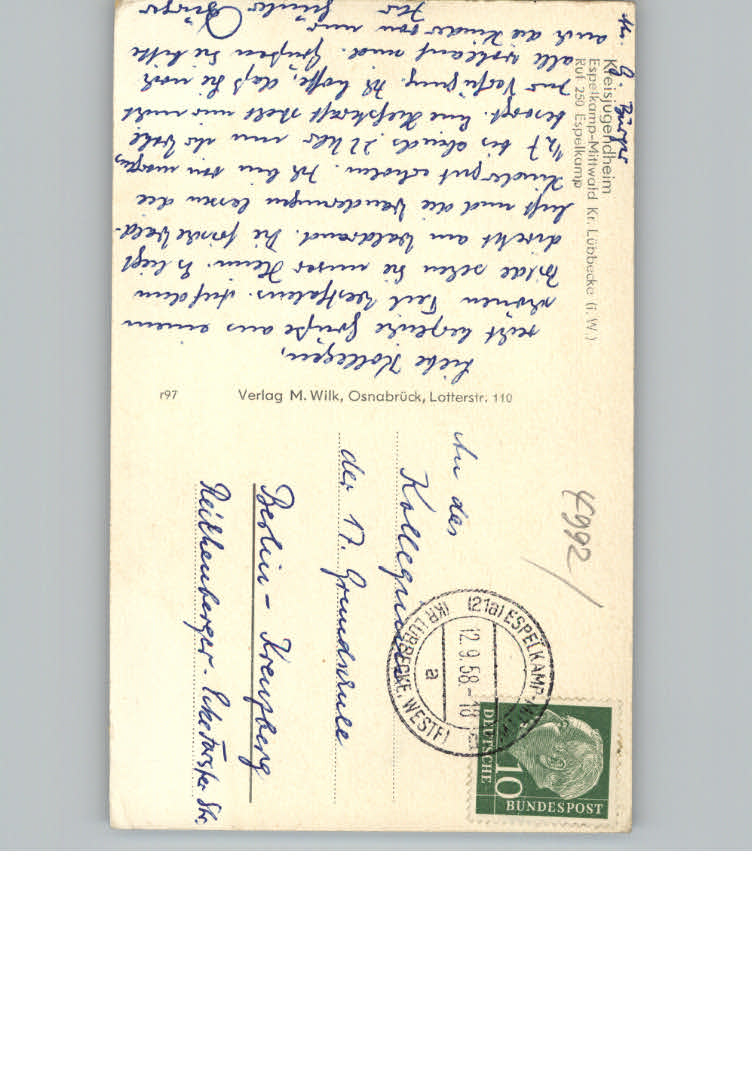 Kreisjugendheim
Espelkamp-Mittwald Kr. Lübbecke (i. W.)
Ruf 250 Espelkamp
G. Bürger
Liebe Kollegen,
recht herzliche Grüße aus einem
schönen Teil Westfalens. Auf dem
Bilde sehen Sie unser Heim. Es liegt
direkt am Waldrand. Die frische Wald-
luft und die Wanderungen lassen die
Kinder gut erholen. Ich bin von morgens
1/2 7 bis abends 22 Uhr um ihr Wohl
besorgt. Eine Hilfskraft steht mir nicht
zur Verfügung. Ich hoffe, daß Sie noch
alle wohlauf sind. Grüßen Sie bitte
auch die Kinder von mir
Ihr
Günter Bürger
r97
Verlag M. Wilk, Osnabrück, Lotterstr. 110
4992
An das
Kollegium
der 17. Grundschule
Berlin - Kreuzberg
Reichenberger- Ecke Forster Str.
(21a) ESPELKAMP-
(KR LÜBBECKE, WESTF)
12.9.58.-18
a
DEUTSCHE
BUNDESPOST
10